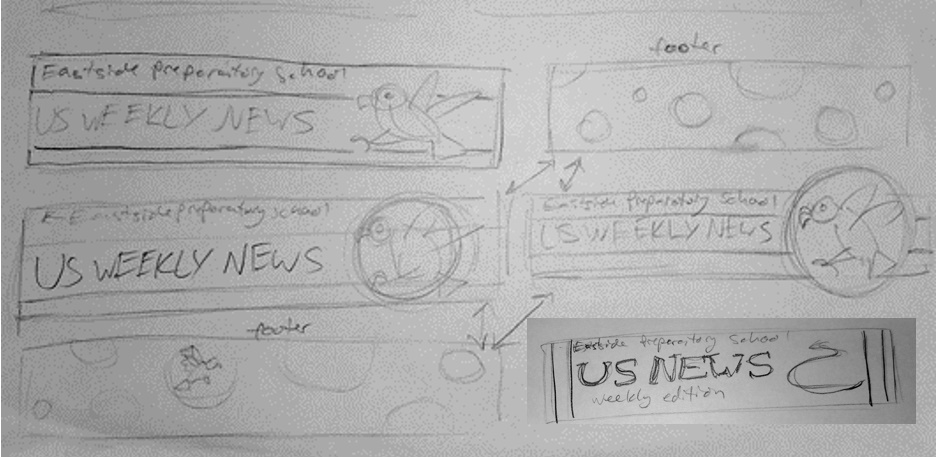 Eastside preparitory School
US WEEKLY NEWS
footer
E Eastside preparatory school
US WEEKLY NEWS
Eastside Preparitory School
US WEEKLY NEWS
footer
Eastside Preparitory School
US NEWS
weekly edition